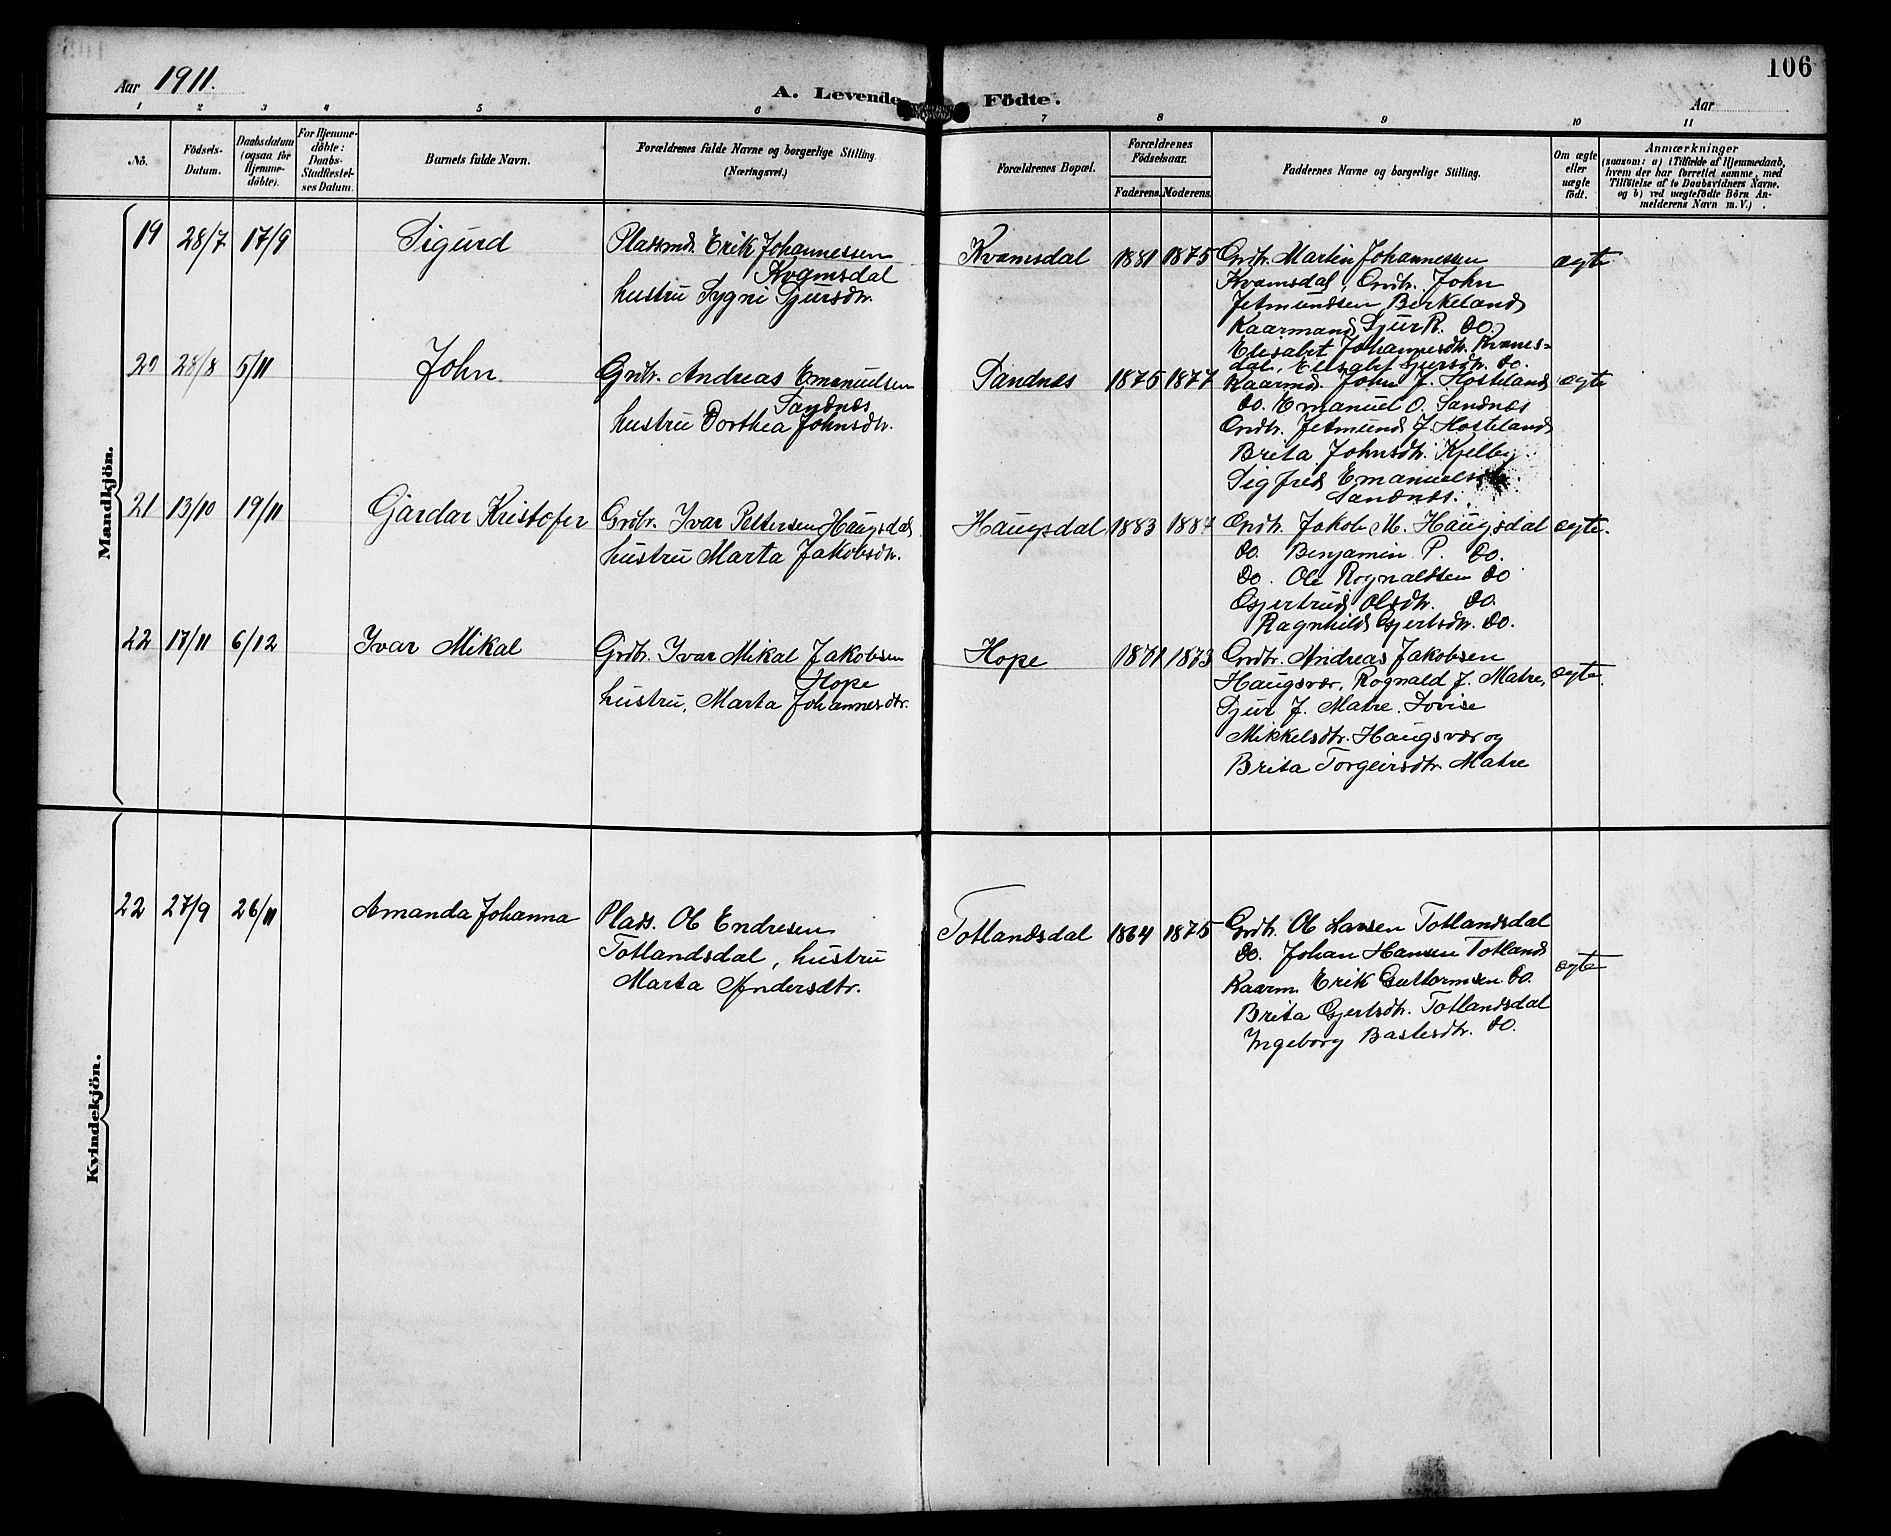 106
Aar 1911.
A. Levende Födte.
Aar
1 2 3 4 5 6 7 8 9 10 11
No.
Födsels-
Datum.
Daabsdatum
(ogsaa for
Hjemme-
döbte).
For Hjemme-
döbte:
Daabs-
Stadfæstel-
ses Datum.
Barnets fulde Navn.
Forældrenes fulde Navne og borgerlige Stilling
(Næringsvei.)
Forældrenes Bopæl.
Forældrenes
Födselsaar.
Faderens. Moderens.
Faddernes Navne og borgerlige Stilling.
Om ægte
eller
uægte
födt.
Anmærkninger
(saasom: a) i Tilfælde af Hjemmedaab,
hvem der har forrettet samme, med
Tilföielse af to Daabsvidners Navne,
og b) ved uægtefödte Börn An-
melderens Navn m. V.)
Mandkjön.
19 28/7 17/9 Sigurd
Pladsmd. Erik Johannessen
Kvamsdal
hustru Sygni Sjursdtr.
Kvamsdal 1881 1875
Grdbr. Martin Johannessen
Kvamsdal, Grdbr. John
Jetmundsen Berkeland
Kaarmand Sjur R. do.
Elisabet Johannesdtr. Kvams-
dal, Elisabet Sjursdtr. do.
ægte
20 28/8 5/11 John
Grdbr. Andreas Emanuelsen
Sandnes
hustru Dorthea Johnsdtr.
Sandnes 1875 1877
Kaarmd. John J. Hosteland
do. Emanuel O. Sandnes
Grdbr. Jetmund J. Hosteland
Brita Johnsdtr. Kjelby
Sigfred Emanuels
Sandnes.
ægte
21 13/10 19/11 Gjardar Kristofer
Grdbr. Ivar Pettersen Haugsdal
hustru Marta Jakobsdtr.
Haugsdal 1883 1887
Grdbr. Jakob M. Haugsdal
do. Benjamin P. do.
do. Ole Rognaldsen do
Gjertrud Olsdtr. do.
Ragnhild Gjertsdtr. do.
ægte.
22 17/11 6/12 Ivar Mikal
Grdbr. Ivar Mikal Jakobsen
Hope
hustru, Marta Johannesdtr.
Hope 1871 1873
Grdbr. Andreas Jakobsen
Haugsvær, Rognald J. Matre,
Sjur J. Matre. Lovise
Mikkelsdtr. Haugsvær og
Brita Torgeirsdtr. Matre
ægte.
Kvindekjön.
22 27/9 26/11 Amanda Johanna
Plads. Ole Endresen
Totlandsdal, hustru
Marta Andersdtr.
Totlandsdal 1864 1875
Grdbr. Ole Larsen Totlandsdal
do. Johan Hansen Totland
Kaarm. Erik Guttormsen do.
Brita Gjertsdtr. Totlandsdal
Ingeborg Bastesdtr. do.
ægte